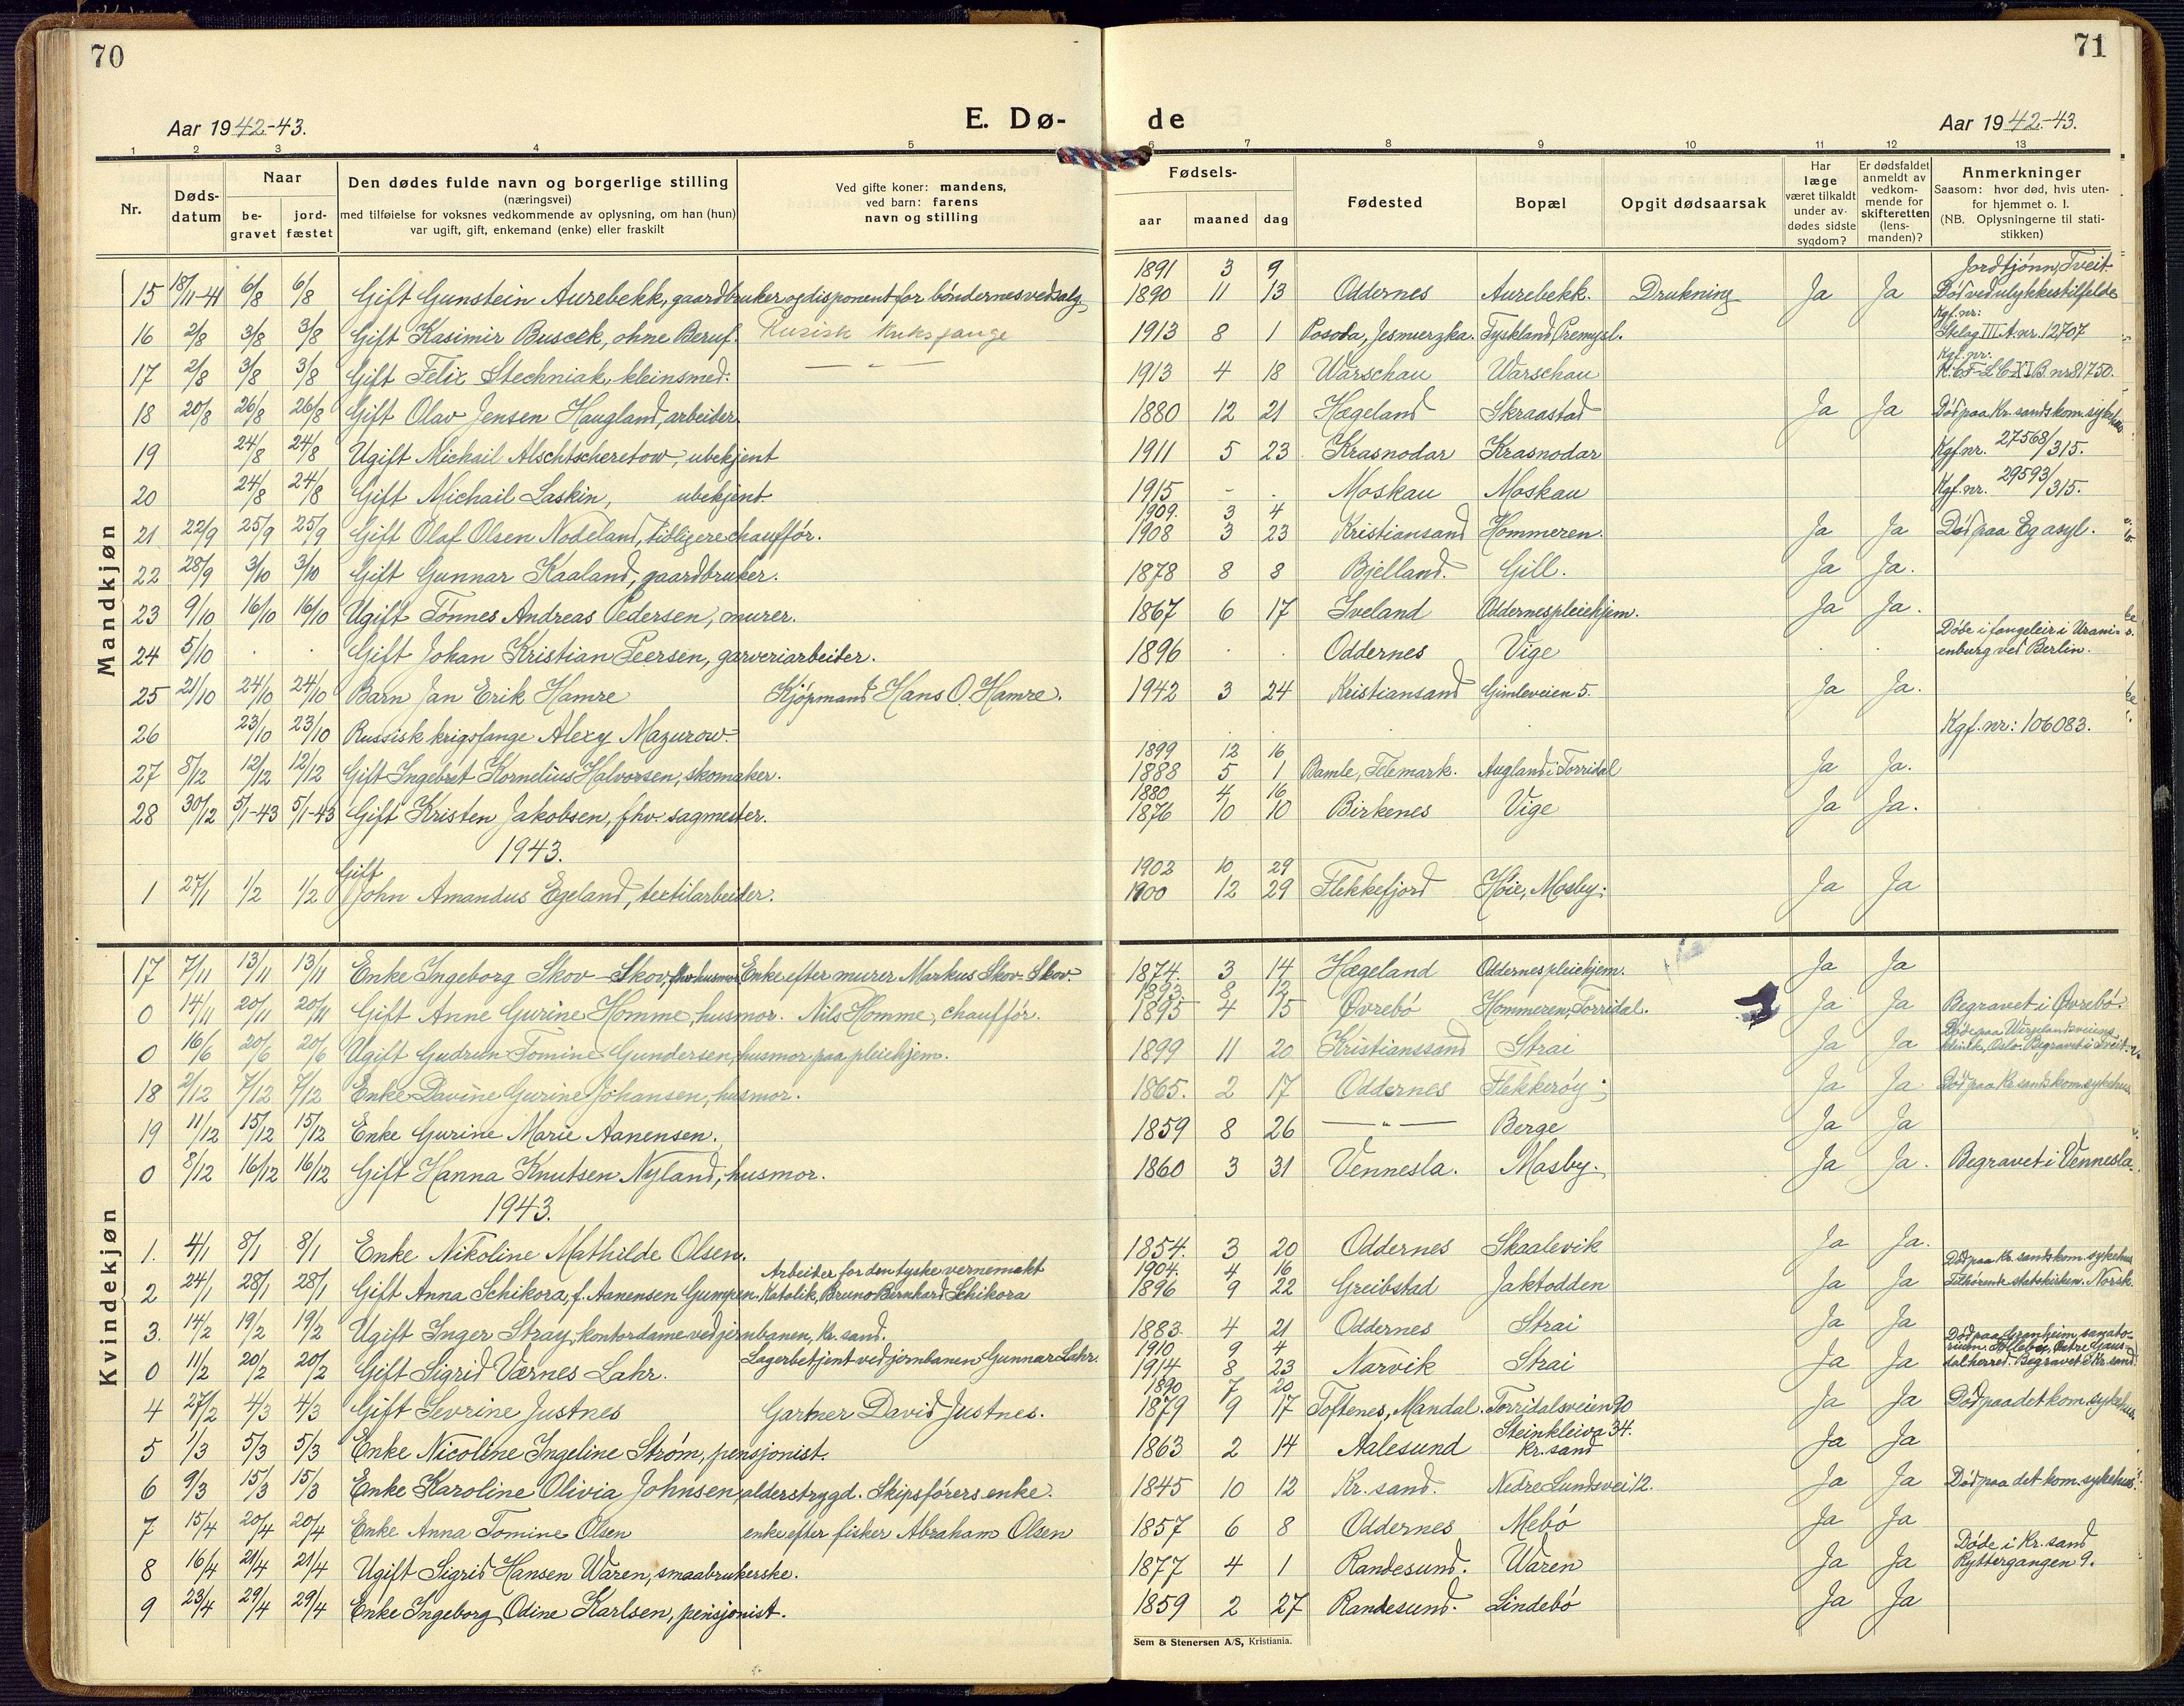 70
71
Aar 1942-43.
E. Dø-
de
Aar 1942-43.
1 2 3 4 5 6 7 8 9 10 11 12 13
Nr.
Døds-
datum
Naar
be-
gravet
jord-
fæstet
Den dødes fulde navn og borgerlige stilling
(næringsvei)
med tilføielse for voksnes vedkommende av oplysning, om han (hun)
var ugift, gift, enkemand (enke) eller fraskilt
Ved gifte koner: mandens,
ved barn: farens
navn og stilling
Fødsels-
aar maaned dag
Fødested
Bopæl
Opgit dødsaarsak
Har
læge
været tilkaldt
under av-
dødes sidste
sygdom?
Er dødsfaldet
anmeldt av
vedkom-
mende for
skifteretten
(lens-
manden)?
Anmerkninger
Saasom: hvor død, hvis uten-
for hjemmet o. l.
(NB. Oplysningerne til stati-
stikken)
Mandkjøn
1891 3 9 Jordtjønn, Tveit
15 18/11-41 6/8 6/8 Gift Gunstein Aurebekk, gaardbruker og disponent for bøndernes vedsalg 1890 11 13 Oddernes Aurebekk. Drukning Ja Ja Død ved ulykkestilfelde
Kgf. nr:
16 2/8 3/8 3/8 Gift Kasimir Buscek, ohne Beruf. Rusisk kriksfange 1913 8 1 Posoda, Jesmierzka. Tyskland, Premysl. Stalag III A. nr. 12707
Kgf. nr:
17 2/8 3/8 3/8 Gift Felix Stechniak, kleinsmed. — " — 1913 4 18 Warschau Warschau XI B. nr 81750.
18 20/8 26/8 26/8 Gift Olav Jensen Haugland, arbeider. 1880 12 21 Hægeland Skraastad Ja Ja Død paa Kr.sands kom. sykehus
19 24/8 24/8 Ugift Michail Alschtscheretow, ubekjent 1911 5 23 Krasnodar Krasnodar Kgf. nr. 27568/315.
20 24/8 24/8 Gift Michail Laskin, ubekjent 1915 - . Moskau Moskau Kgf. nr. 29593/315.
1909. 3 4
21 22/9 25/9 25/9 Gift Olaf Olsen Nodeland, tidligere chauffør. 1908 3 23 Kristiansand Hommeren. Ja Ja Død paa Eg asyl.
22 28/9 3/10 3/10 Gift Gunnar Kaaland, gaardbruker. 1878 8 8 Bjelland. Gill. Ja Ja.
23 9/10 16/10 16/10 Ugift Tønnes Andreas Pedersen, murer. 1867 6 17 Iveland Oddernes pleiehjem. Ja Ja.
Døde i fangeleir i Urani-
24 5/10 . . Gift Johan Kristian Peersen, garveriarbeider. 1896 . . Oddernes Vige . . enburg ved Berlin.
25 21/10 24/10 24/10 Barn Jan Erik Hamre Kjøpmand Hans O. Hamre. 1942 3 24 Kristiansand Gimleveien 5. Ja Ja.
26 23/10 23/10 Russisk krigsfange Alexy Mazurow. Kgf. nr: 106083.
1899 12 16
27 8/12 12/12 12/12 Gift Ingebret Kornelius Halvorsen, skomaker. 1888 5 1 Bamle, Telemark. Augland i Torridal Ja Ja.
1880 4 16
28 30/12 5/1-43 5/1-43 Gift Kristen Jakobsen, fhv. sagmester. 1876 10 10 Birkenes Vige Ja Ja.
1943.
Gift 1902 10 29
1 27/1 1/2 1/2 John Amandus Egeland, textilarbeider. 1900 12 29 Flekkefjord Høie, Mosby. Ja Ja
Kvindekjøn
17 7/11 13/11 13/11 Enke Ingeborg Skov-Skov, fhv. husmor Enke efter murer Markus Skov-Skov. 1874. 3 14 Hægeland Oddernes pleiehjem. Ja Ja
1893 8 12
0 14/11 20/11 20/11 Gift Anne Gurine Homme, husmor. Nils Homme, chauffør. 1895 4 15 Øvrebø Hommeren, Torridal. Ja Ja Begravet i Øvrebø.
Døde paa Wergelandsveiens
0 16/6 20/6 20/6 Ugift Gudrun Tomine Gundersen, husmor paa pleiehjem. 1899 11 20 Kristianssand Strai Ja Ja klinik, Oslo. Begravet i Tveit.
18 2/12 7/12 7/12 Enke Davine Gurine Johansen, husmor. 1865. 2 17 Oddernes Flekkerøy Ja Ja Død paa Kr.sands kom. sykehus
19 11/12 15/12 15/12 Enke Gurine Marie Aanensen. 1859 8 26 — " — Berge Ja Ja
0 8/12 16/12 16/12 Gift Hanna Knutsen Nyland, husmor. 1860 3 31 Vennesla. Mosby. Ja Ja. Begravet i Vennesla.
1943.
1. 4/1 8/1 8/1 Enke Nikoline Mathilde Olsen. 1854. 3 20 Oddernes Skaalevik Ja Ja.
Arbeiter for den tyske vernemakt 1904. 4 16 Død paa Kr.sands kom. sykehus
2 24/1 28/1 28/1 Gift Anna Schikora, f. Aanensen Gumpen. Katolik, Bruno Bernhard Schikora 1896 9 22 Greibstad Jaktodden Ja Ja Tilhørende statskirken. Norsk.
3. 14/2 19/2 19/2 Ugift Inger Stray, kontordame ved jernbanen, Kr.sand. 1883. 4 21 Oddernes Strai Ja Ja
Lagerbetjent ved jernbanen Gunnar Lahr. 1910 9 4 Død paa Granheim sanato-
rium. Follebu, Østre Gaus-
0 11/2 20/2 20/2 Gift Sigrid Værnes Lahr. 1914 8 23 Narvik Strai Ja Ja dal herred. Begravet i Kr.sand.
1890 7 20
4 27/2 4/3 4/3 Gift Sevrine Justnes Gartner David Justnes. 1879 9 17 Toftenes, Mandal. Torridalsveien 90 Ja Ja Død paa det kom. sykehus
Steinkleiva 34.
5 1/3 5/3 5/3 Enke Nicoline Ingeline Strøm, pensjonist. 1863 2 14 Aalesund Kr.sand Ja Ja
6 9/3 15/3 15/3 Enke Karoline Olivia Johnsen, alderstrygd. Skipsførers enke. 1845 10 12 Kr.sand. Nedre Lundsvei 12. Ja Ja Død paa det kom. sykehus.
7 15/4 20/4 20/4 Enke Anna Tomine Olsen enke efter fisker Abraham Olsen 1857 6 8 Oddernes Mebø Ja Ja
Døde i Kr.sand
8 16/4 21/4 21/4 Ugift Sigrid Hansen Waren, smaabrukerske. 1877 4 1 Randesund. Waren Ja Ja Ryttergangen 9.
9 23/4 29/4 29/4 Enke Ingeborg Odine Karlsen, pensjonist. 1859 2 27 Randesund. Lindebø Ja Ja
Sem & Stenersen A/S, Kristiania.